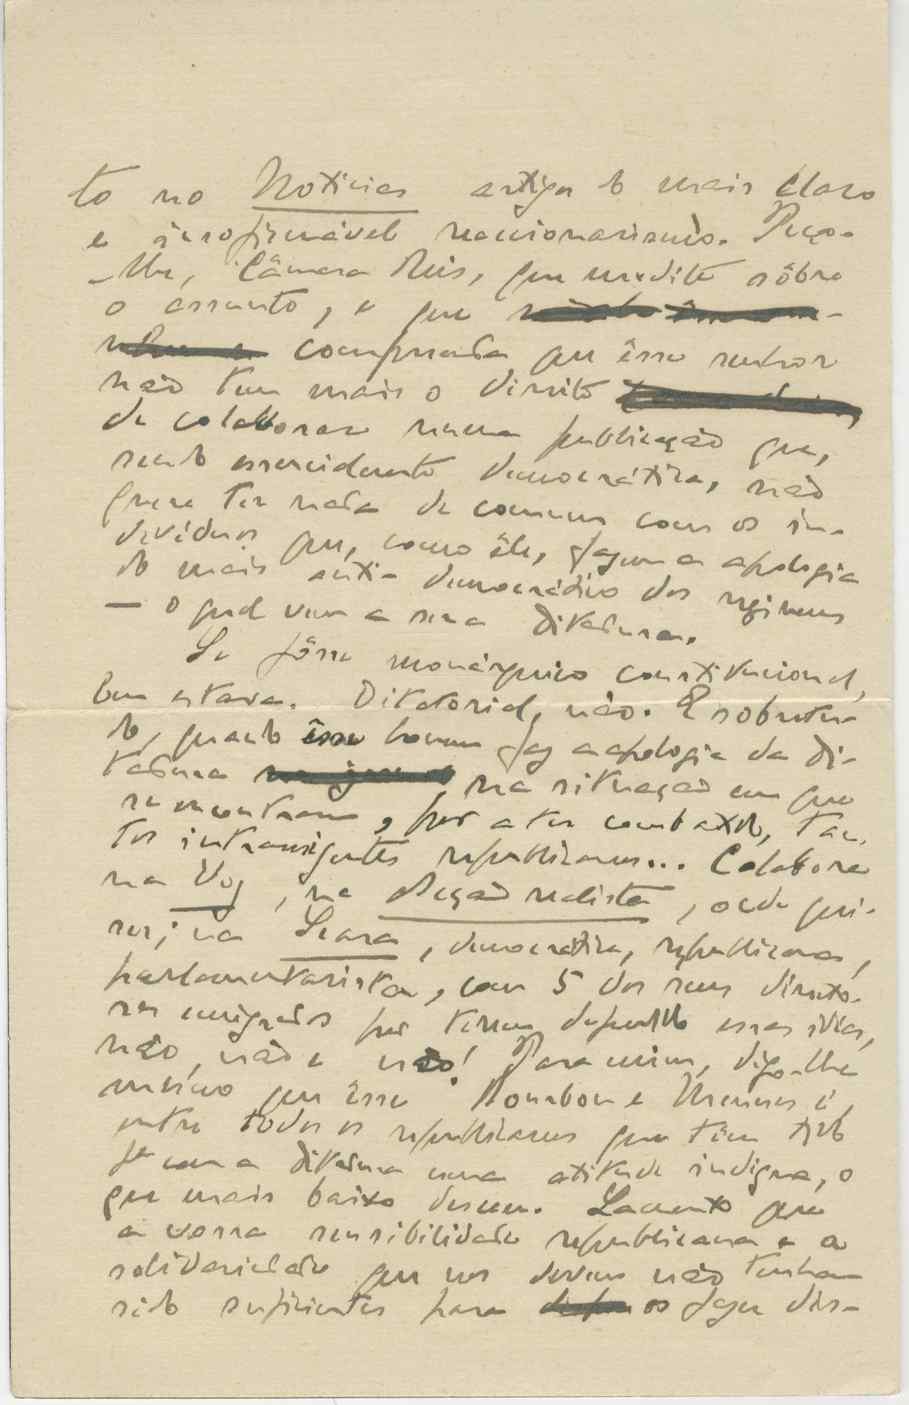 to no Noticias artigos do mais claro
e irrefirmável reacionarismo. Peço-
-lhe, Câmara Reis, que medite sôbre
o assunto, e que
compreenda que êsse senhor
não tem mais o direito
de colaborar numa publicação que,
sendo essencialmente democrática, não
quere ter nada de comum com os in-
devíduos que, como êle, fazem a apologia
do mais anti-democrático dos regimens
— o qual vem a ser a Ditadura.
Se fôsse monárquico constitucional,
bem estava. Ditatorial, não. E sobretu-
do, quando êsse homem faz a apologia da Di-
tadura, na situação em que
se encontram, por a ter combatido, tan-
tos intransigentes republicanos... Colabore
na Voz, na Acção realista, onde qui-
ser; na Seara, democrática, republicana,
parlamentarista, com 5 dos seus directo-
res emigrados por terem defendido essas idéas,
não, não e não! Para mim, digo-lhe
mesmo que êsse Bourbon e Meneses é
entre todos os republicanos que têm tido
para com a ditadura uma atitude indigna, o
que mais baixo desceu. Lamento que
a vossa sensibilidade republicana e a
solidariedade que nos devem não tenham
sido suficientes para os fazer dis-